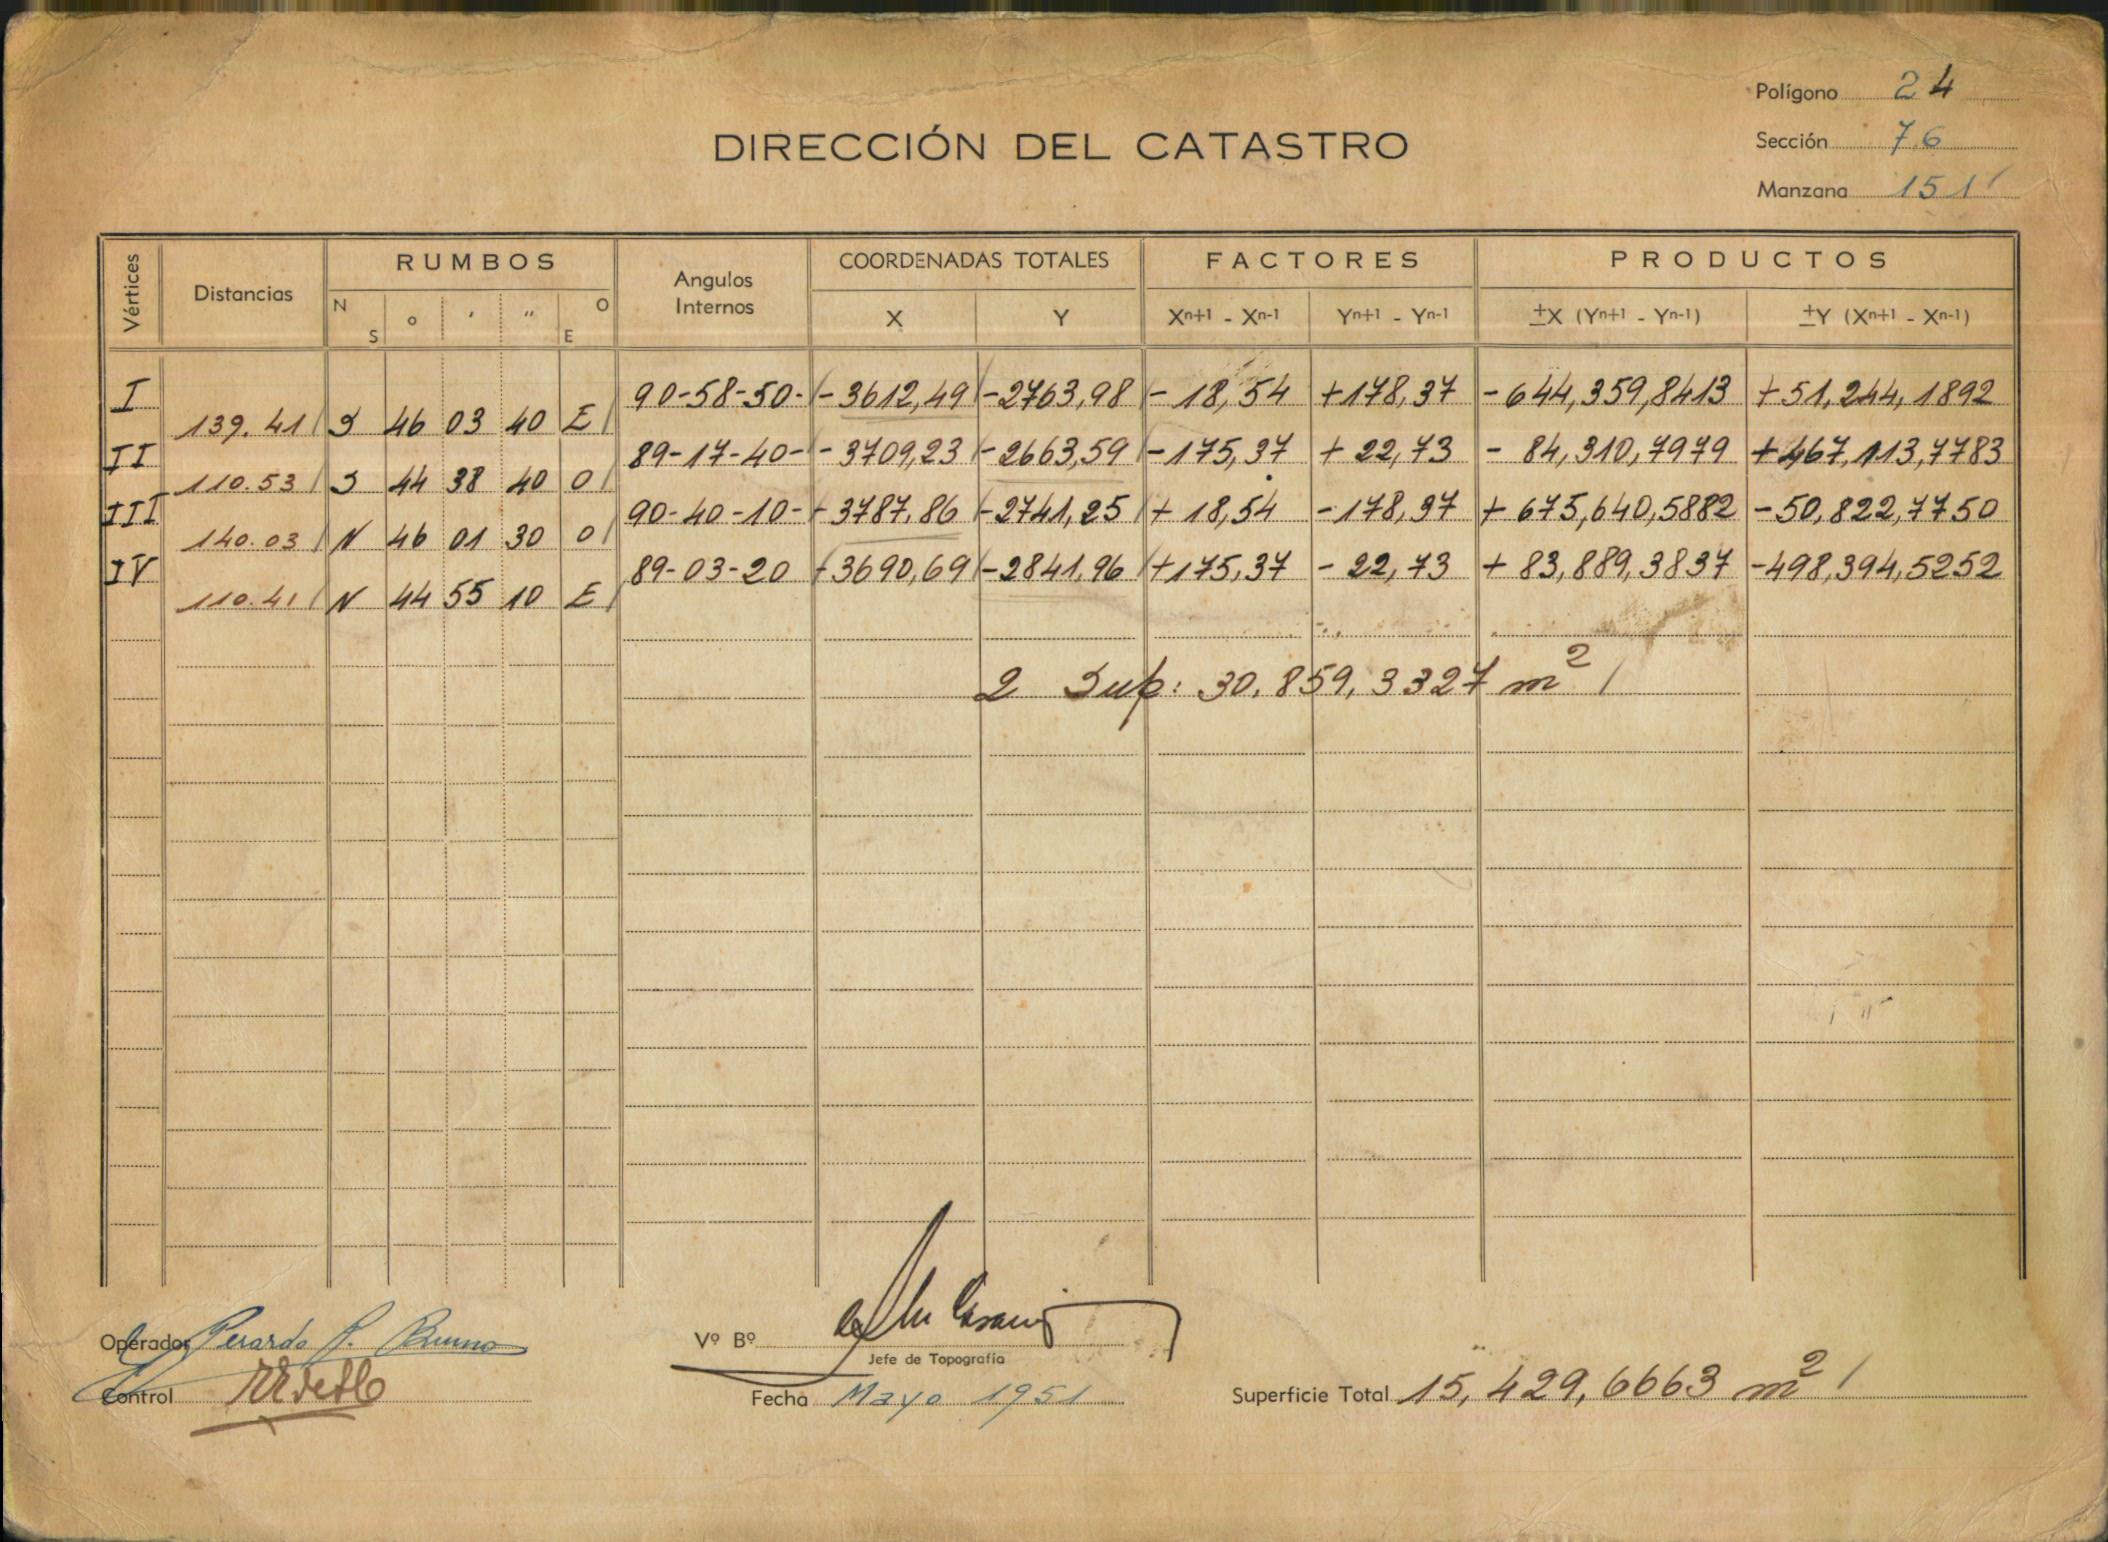 Polígono 24
DIRECCIÓN DEL CATASTRO
Sección 76
Manzana 151
Vértices Distancias RUMBOS Angulos Internos COORDENADAS TOTALES FACTORES PRODUCTOS
N S ° ' '' O E X Y Xn+1 - Xn-1 Yn+1 - Yn-1 ±X (Yn+1 - Yn-1) ±Y (Xn+1 - Xn-1)
I 90-58-50- -3612,49 -2763,98 -18,54 +178,37 -644,359,8413 +51,244,1892
139.41 S 46 03 40 E
II 89-17-40- -3709,23 -2663,59 -175,37 +22,73 -84,310,7979 +467,113,7783
110.53 S 44 38 40 O
III 90-40-10- -3787,86 -2741,25 +18,54 -178,37 +675,640,5882 -50,822,7750
140.03 N 46 01 30 O
IV 89-03-20 -3690,69 -2841,96 +175,37 -22,73 +83,889,3837 -498,394,5252
110.41 N 44 55 10 E
2 Sup: 30,859,3327 m2
Operador Gerardo P. Bruno
Vº Bº
Jefe de Topografía
Control
Fecha Mayo 1951
Superficie Total 15,429,6663 m2